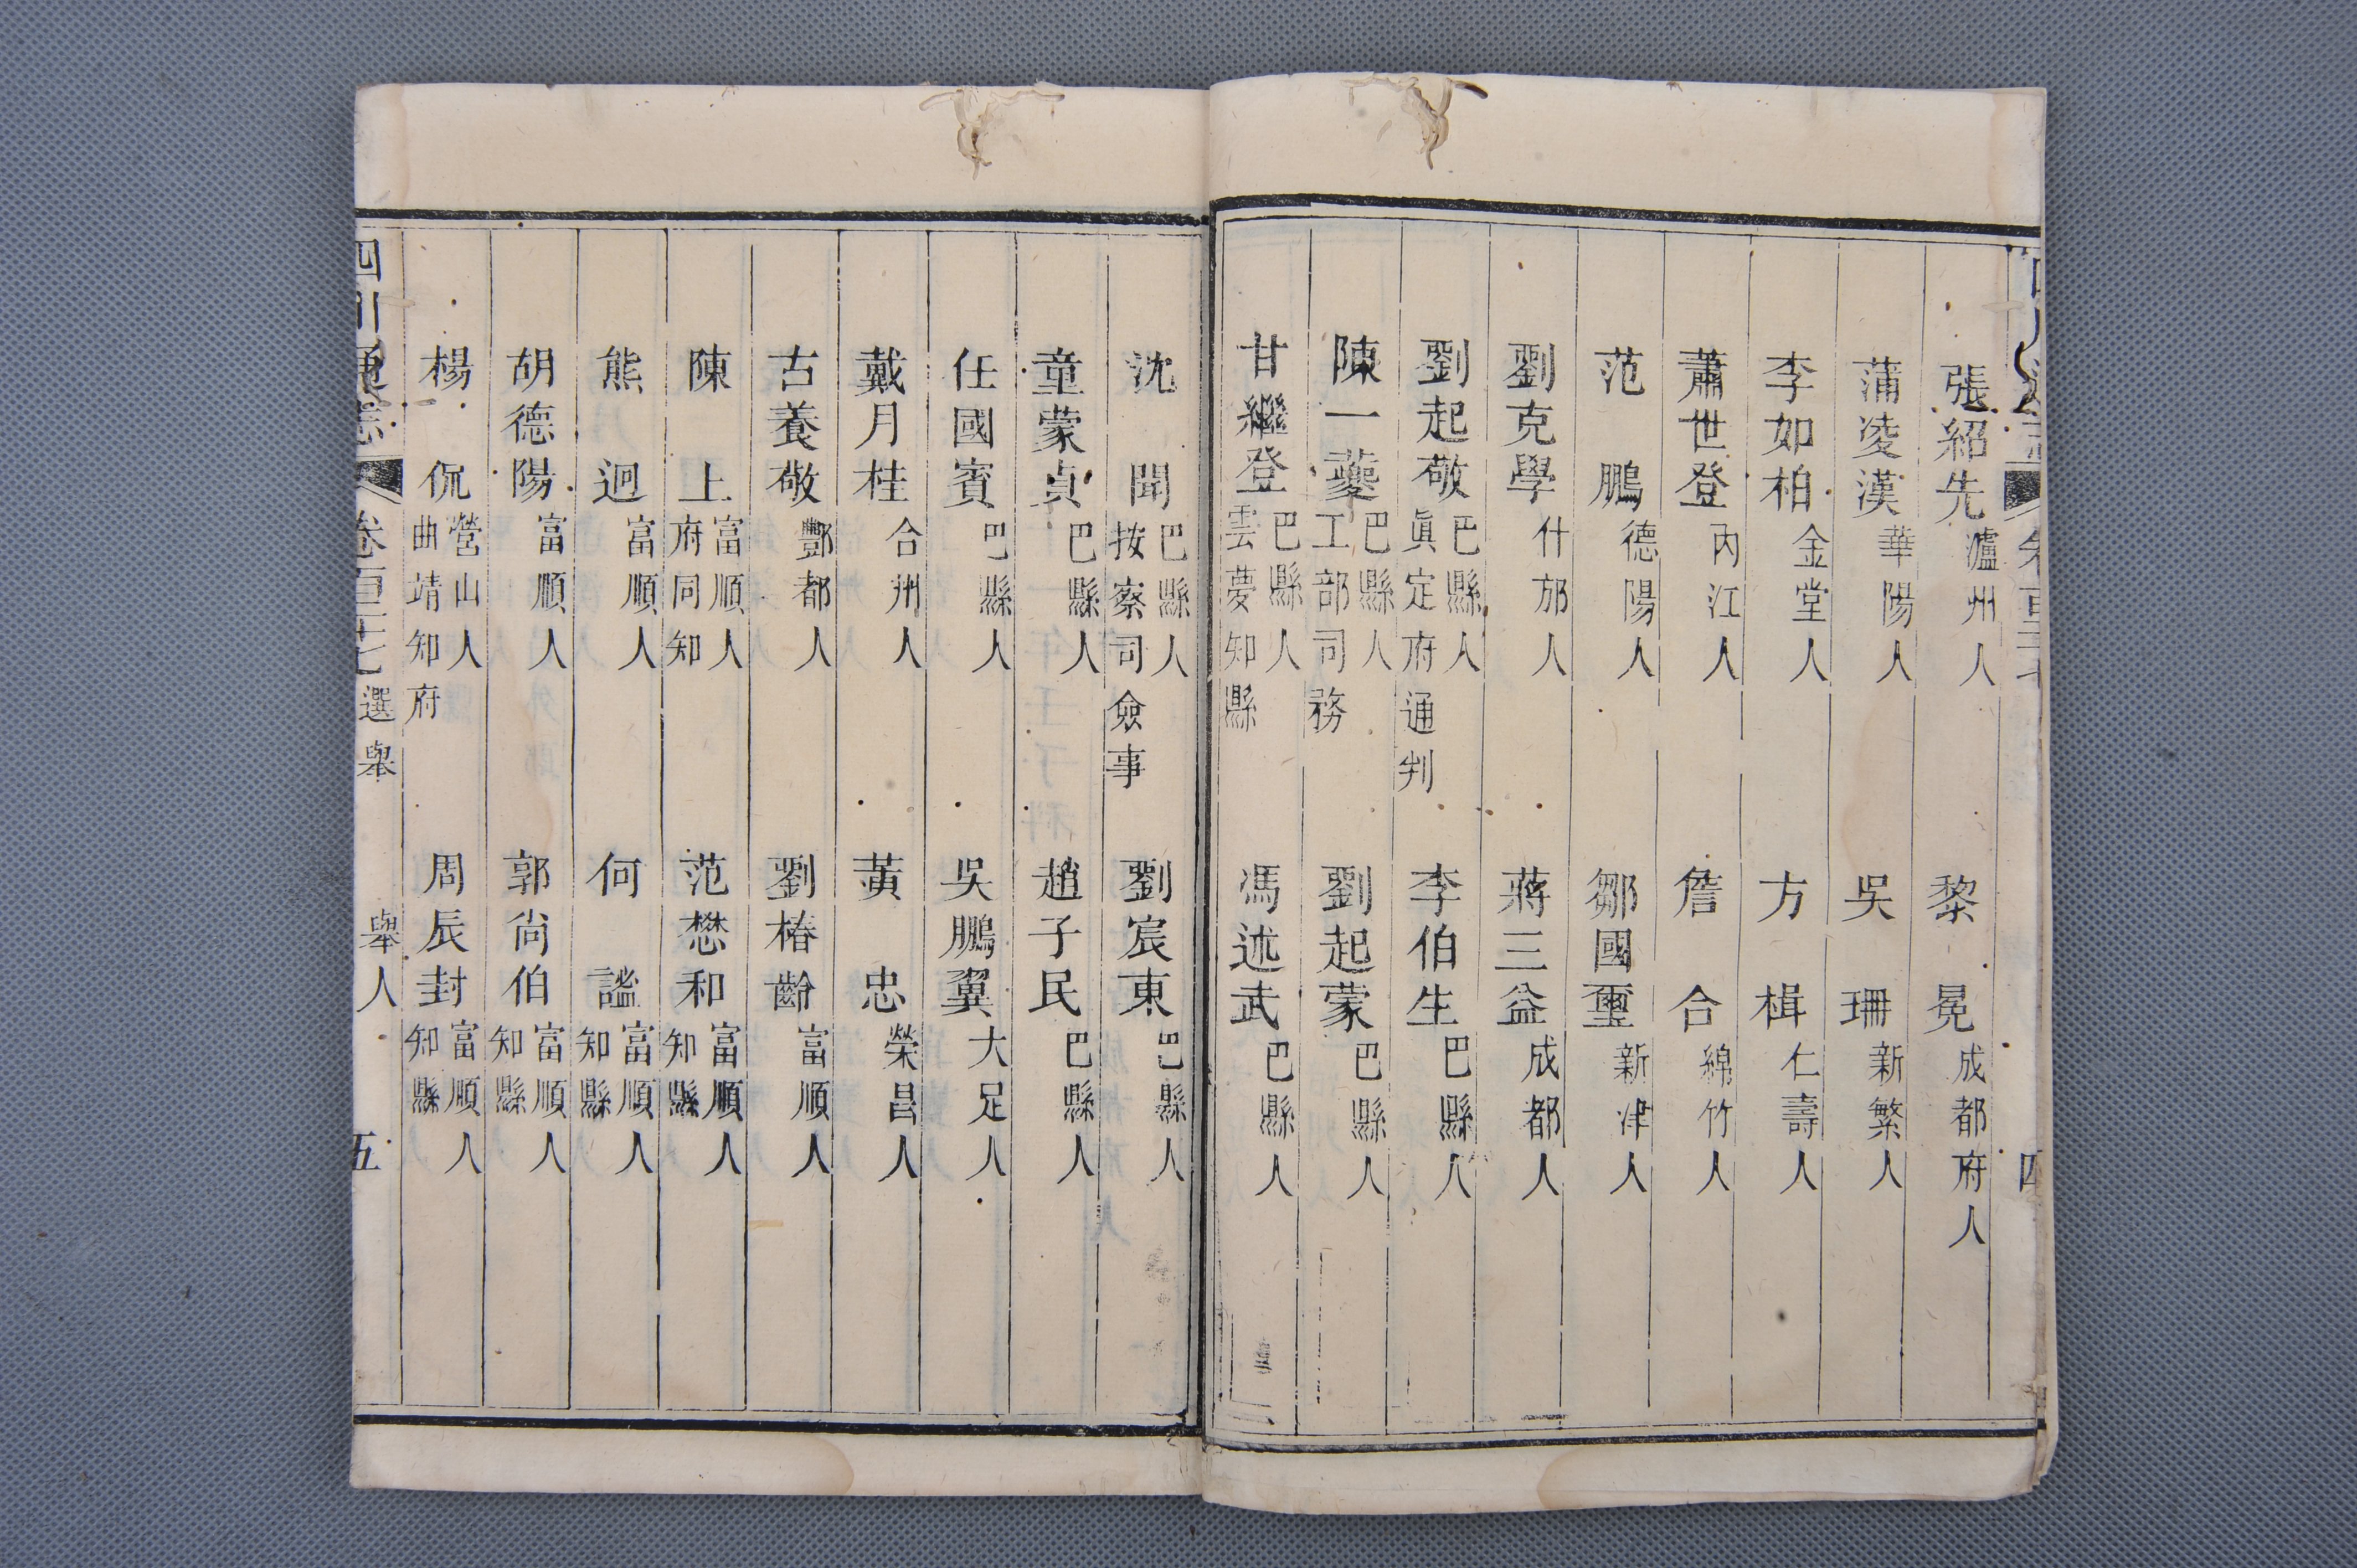 張紹先 瀘州人 黎冕 成都府人
蒲凌漢 華陽人 吳珊 新繁人
李如柏 金堂人 方楫 仁壽人
蕭世登 內江人 詹合 綿竹人
范鵬 德陽人 鄒國璽 新津人
劉克學 什邡人 蔣三益 成都人
劉起敬 巴縣人眞定府通判 李伯生 巴縣人
陳一夔 巴縣人工部司務 劉起蒙 巴縣人
甘繼登 巴縣人雲夢知縣 馮述武 巴縣人
沈聞 巴縣人按察司僉事 劉宸東 巴縣人
童蒙貞 巴縣人 趙子民 巴縣人
任國賓 巴縣人 吳鵬翼 大足人
戴月桂 合州人 黃忠 榮昌人
古養敬 酆都人 劉椿齡 富順人
陳上 富順人府同知 范懋和 富順人知縣
熊迥 富順人 何謐 富順人知縣
胡德陽 富順人 郭尙伯 富順人知縣
楊侃 營山人曲靖知府 周辰封 富順人知縣
四川通志 卷一百二十七 選舉 舉人 五